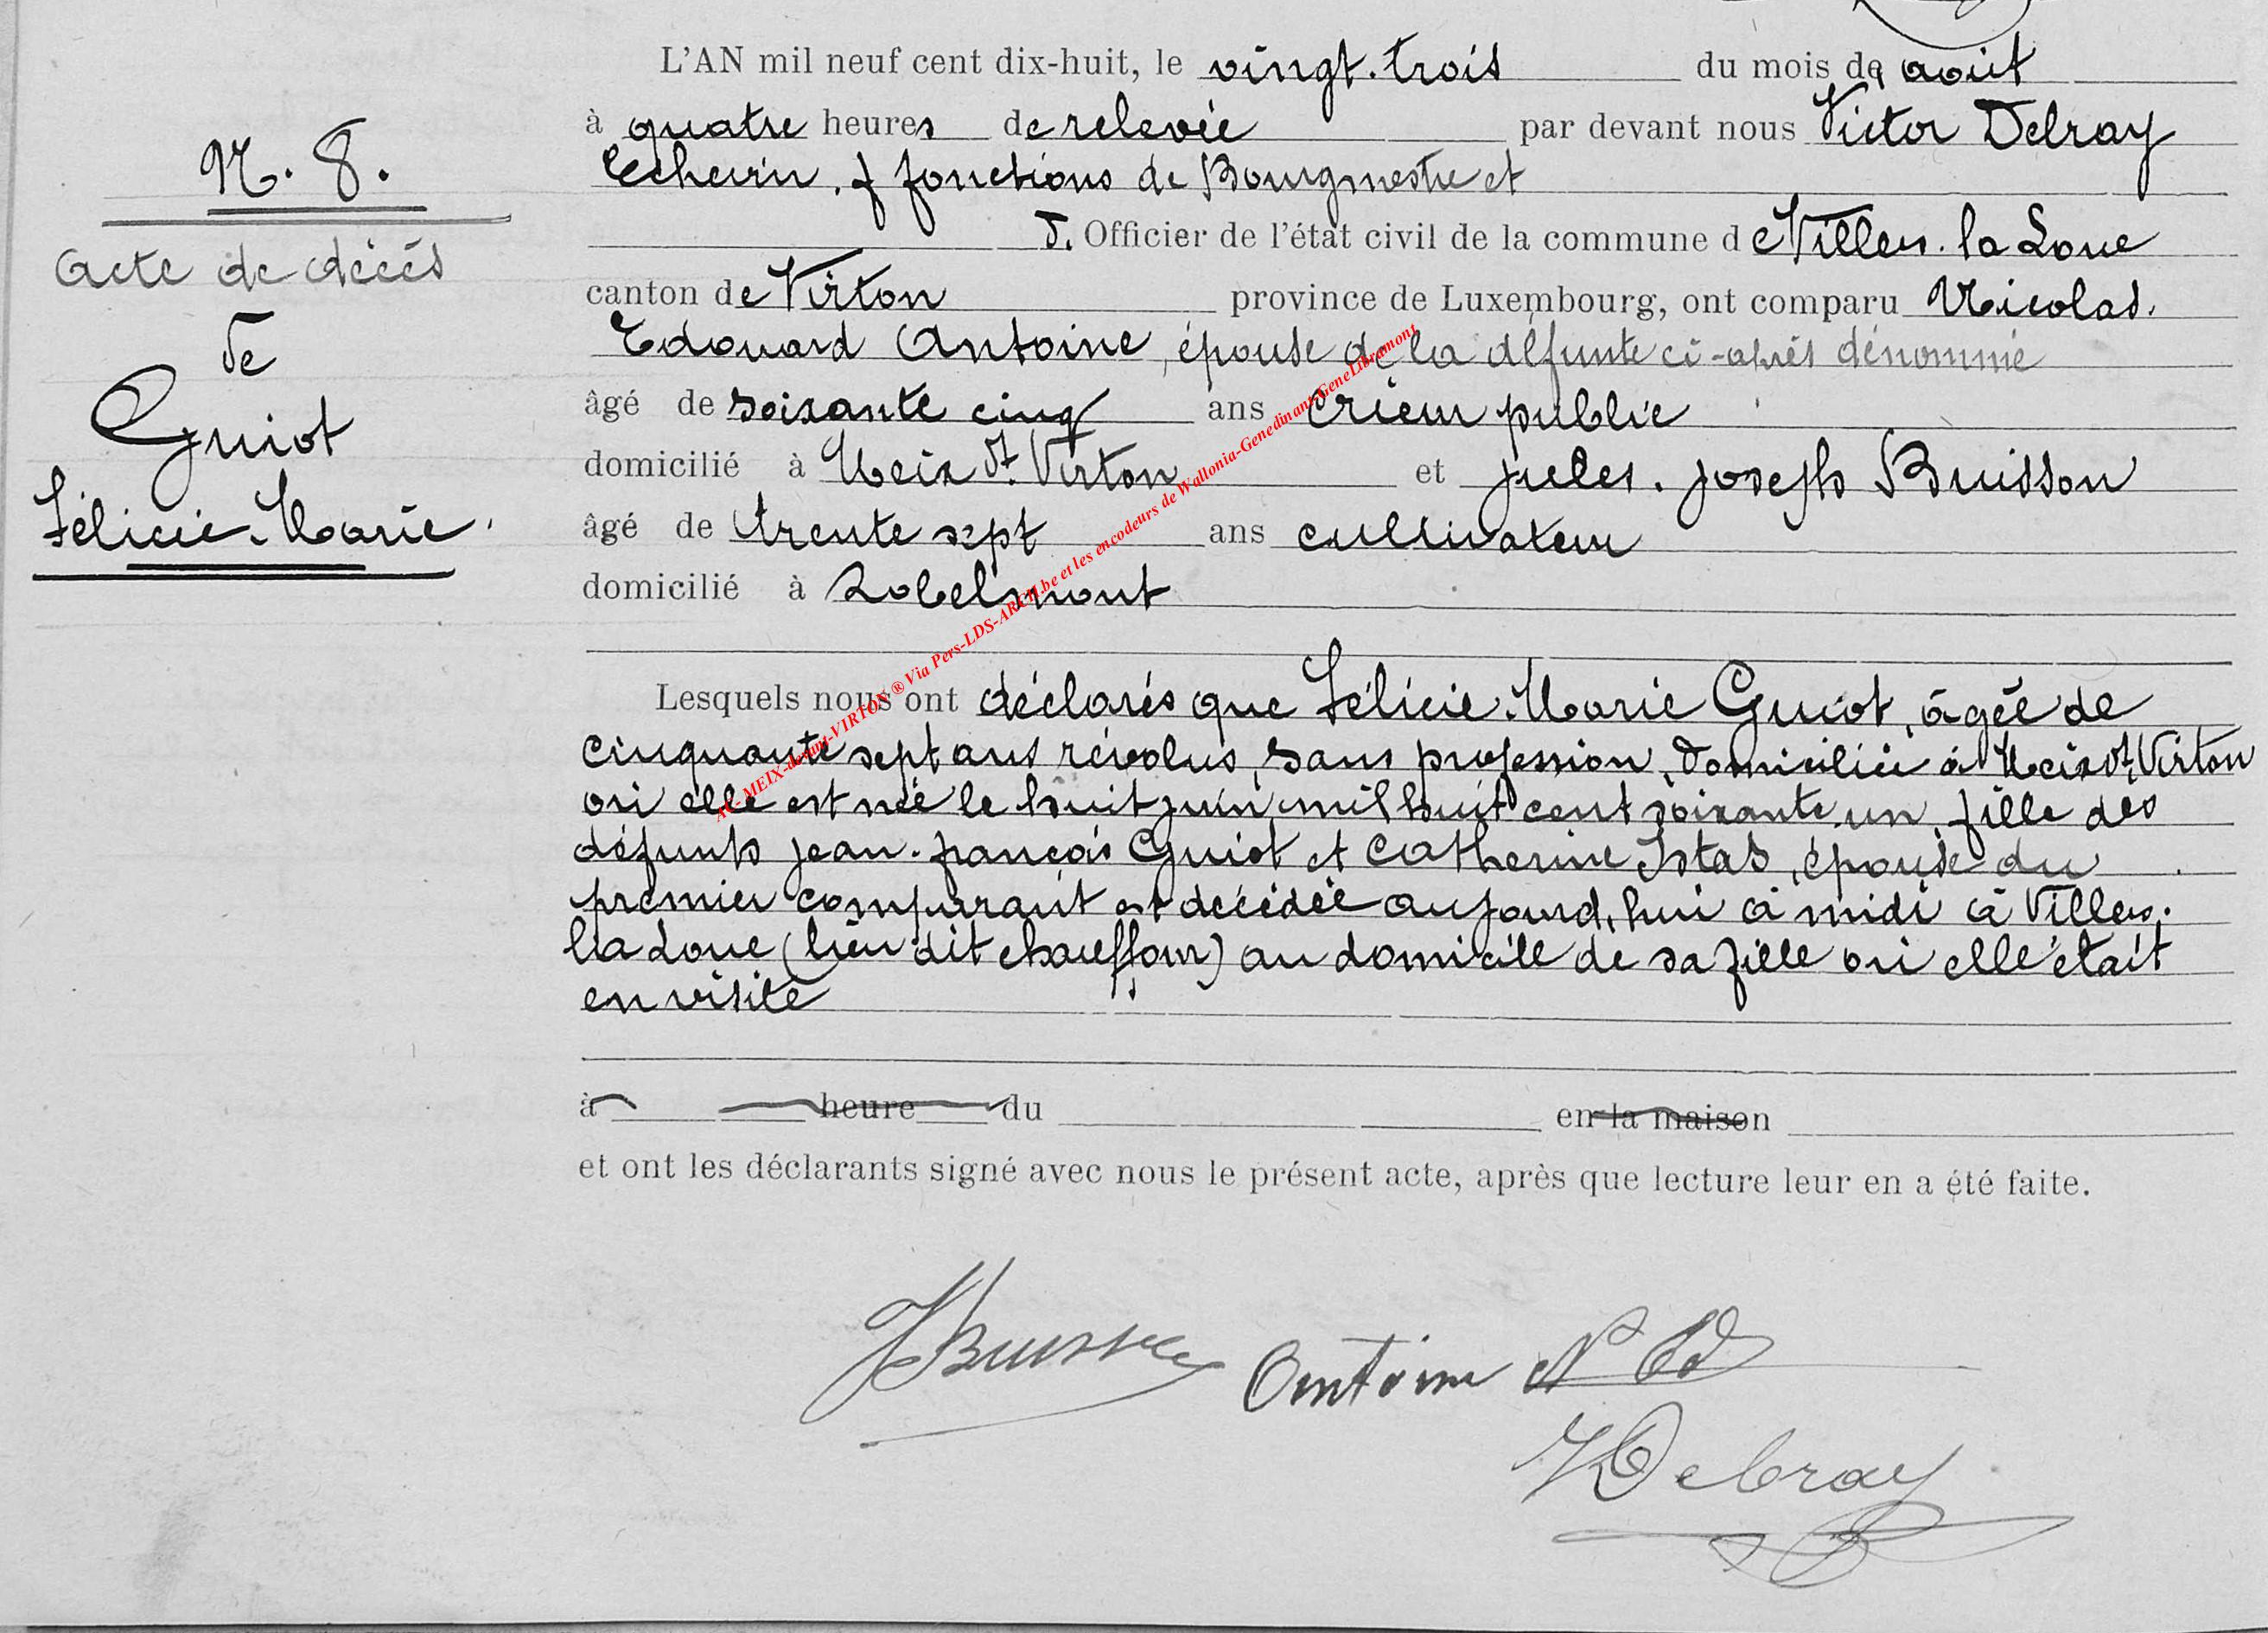 N. 8.
Acte de décès
de
Guiot
Félicie-Marie.
L'AN mil neuf cent dix-huit, le vingt-trois du mois d' août
à quatre heures de relevée par devant nous Victor Delray
Echevin, ff fonctions de Bourgmestre et
d. Officier de l'état civil de la commune de Villers-la Loue
canton de Virton province de Luxembourg, ont comparu Nicolas.
Edouard Antoine, épouse de la défunte ci-après dénommé
âgé de soixante cinq ans crieur public
domicilié à Meix dt Virton et jules. joseph Buisson
âgé de trente sept ans cultivateur
domicilié à Robelmont
Lesquels nous ont déclarés que Félicie-Marie Guiot, âgée de
cinquante sept ans révolus, sans profession, domiciliée à Meix dt Virton
où elle est née le huit juin mil huit cent soixante un, fille des
défunts jean-françois Guiot et Catherine Istas, épouse du
premier comparant est décédée aujourd'hui à midi à Villers-
la Loue (lieu dit chauffour) au domicile de sa fille où elle était
en visite
à heure du en la maison
et ont les déclarants signé avec nous le présent acte, après que lecture leur en a été faite.
JBuisson Antoine N Ed
VDelray
AC-MEIX-devant-VIRTON ® Via Pers-LDS-ARCH.be et les encodeurs de Wallonia-Genedinant-GeneLibramont